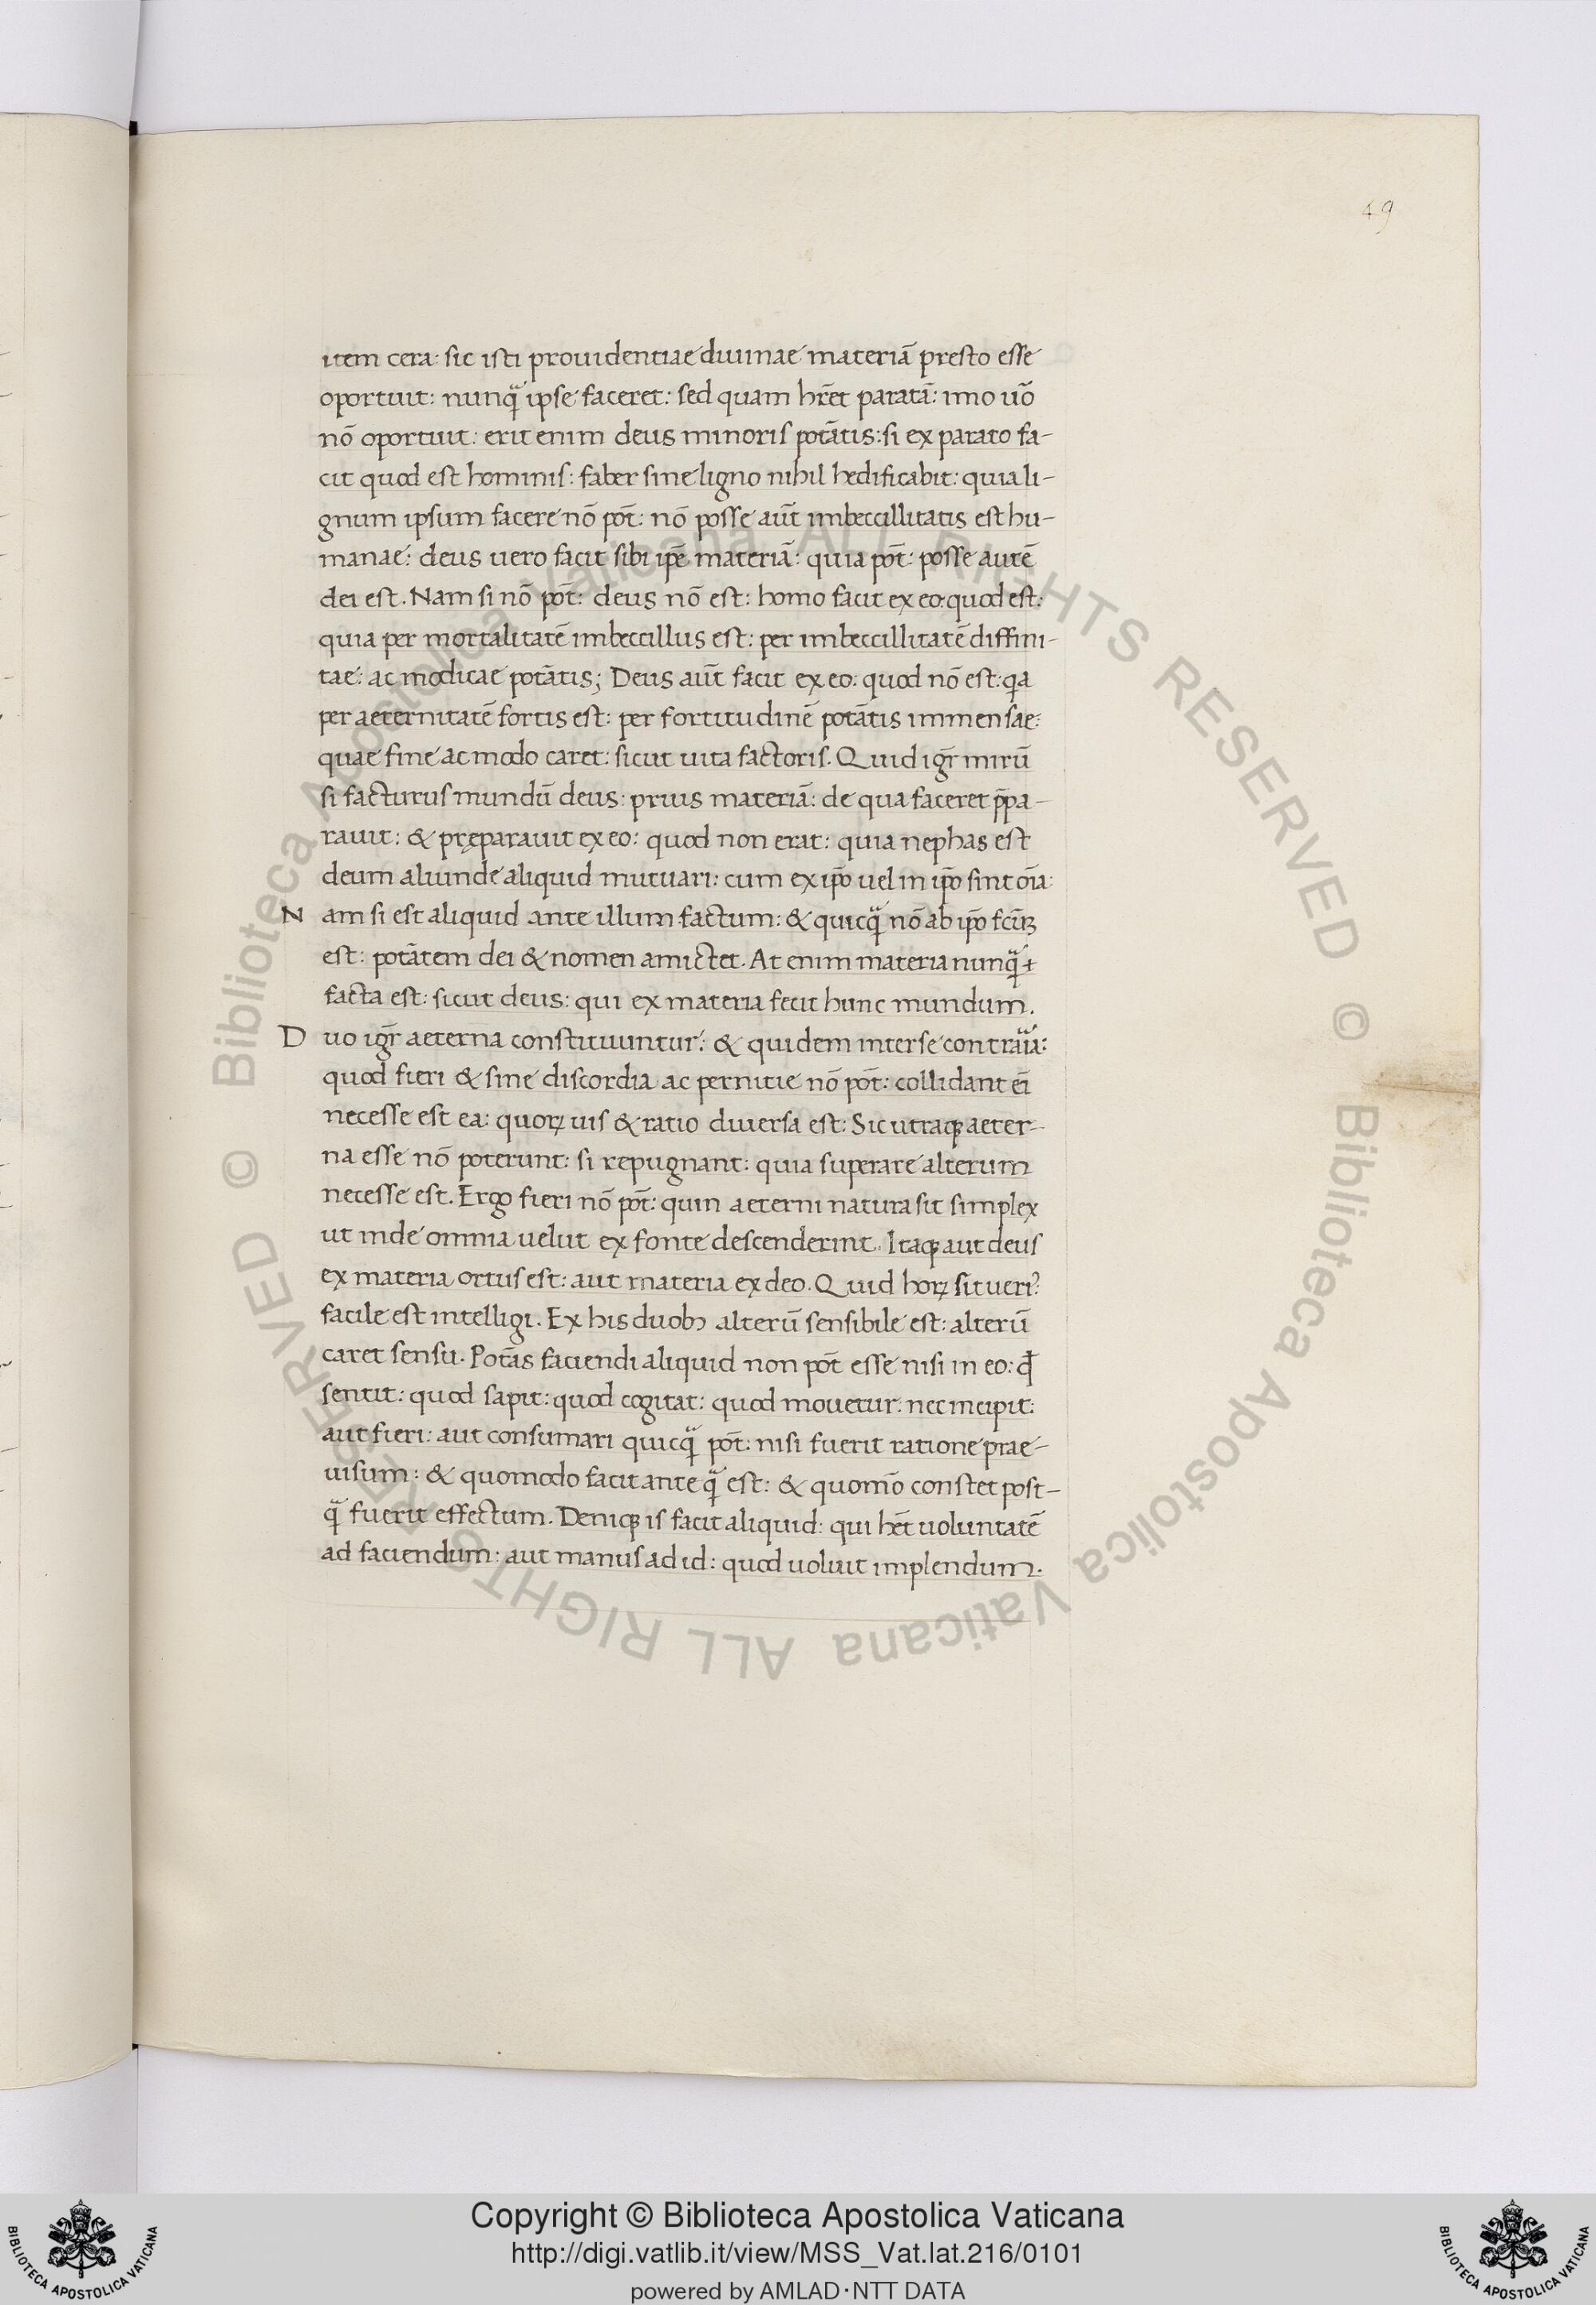 49
item cera: sic isti prouidentiae diuinae materiā presto esse
oportuit: nunq̃ ipse faceret: sed quam hr̄et paratā: imo uō
nō oportuit: erit enim deus minoris potātis: si ex parato fa-
cit quod est hominis: faber sine ligno nihil hedificabit: quia li-
gnum ipsum facere nō pōt: nō posse aūt imbecillitatis est hu-
manae: deus uero facit sibi ip̄e materiā: quia pōt: posse autē
dei est. Nam si nō pōt: deus nō est: homo facit ex eo: quod est:
quia per mortalitatē imbecillus est: per imbecillitatē diffini-
tae: ac modicae potātis; Deus aūt facit ex eo: quod nō est: q̃a
per aeternitatē fortis est: per fortitudinē potātis immensae:
quae fine ac modo caret: sicut uita factoris. Quid igr̄ mirū
si facturus mundū deus: prius materiā: de qua faceret p̄pa-
rauit: & pręparauit ex eo: quod non erat: quia nephas est
deum aliunde aliquid mutuari: cum ex ip̄o uel in ip̄o sint oīa:
Nam si est aliquid ante illum factum: & quicq̃ nō ab ip̄o fcūꝫ
est: potātem dei & nomen amictet. At enim materia nunq̃
facta est: sicut deus: qui ex materia fecit hunc mundum.
Duo igr̄ aeterna constituuntur: & quidem inter se contraīa:
quod fieri & sine discordia ac pernitie nō pōt: collidant eī
necesse est ea: quoꝝ uis & ratio diuersa est: Sic utraqꝫ aeter-
na esse nō poterunt: si repugnant: quia superare alterum
necesse est. Ergo fieri nō pōt: quin aeterni natura sit simplex
ut inde omnia uelut ex fonte descenderint. Itaqꝫ aut deus
ex materia ortus est: aut materia ex deo. Quid hoꝝ sit ueri?
facile est intelligi. Ex his duobꝫ alterū sensibile est: alterū
caret sensu. Potās faciendi aliquid non pōt esse nisi in eo: qđ
sentit: quod sapit: quod cogitat: quod mouetur: nec incipit:
aut fieri: aut consumari quicq̃ pōt: nisi fuerit ratione prae-
uisum: & quomodo facit ante q̃ est: & quomō constet post-
q̃ fuerit effectum. Deniqꝫ is facit aliquid: qui hēt uoluntatē
ad faciendum: aut manus ad id: quod uoluit implendum.
© Biblioteca Apostolica Vaticana ALL RIGHTS RESERVED © Biblioteca Apostolica Vaticana ALL RIGHTS RESERVED
Copyright © Biblioteca Apostolica Vaticana
http://digi.vatlib.it/view/MSS_Vat.lat.216/0101
powered by AMLAD·NTT DATA
BIBLIOTECA APOSTOLICA VATICANA
BIBLIOTECA APOSTOLICA VATICANA